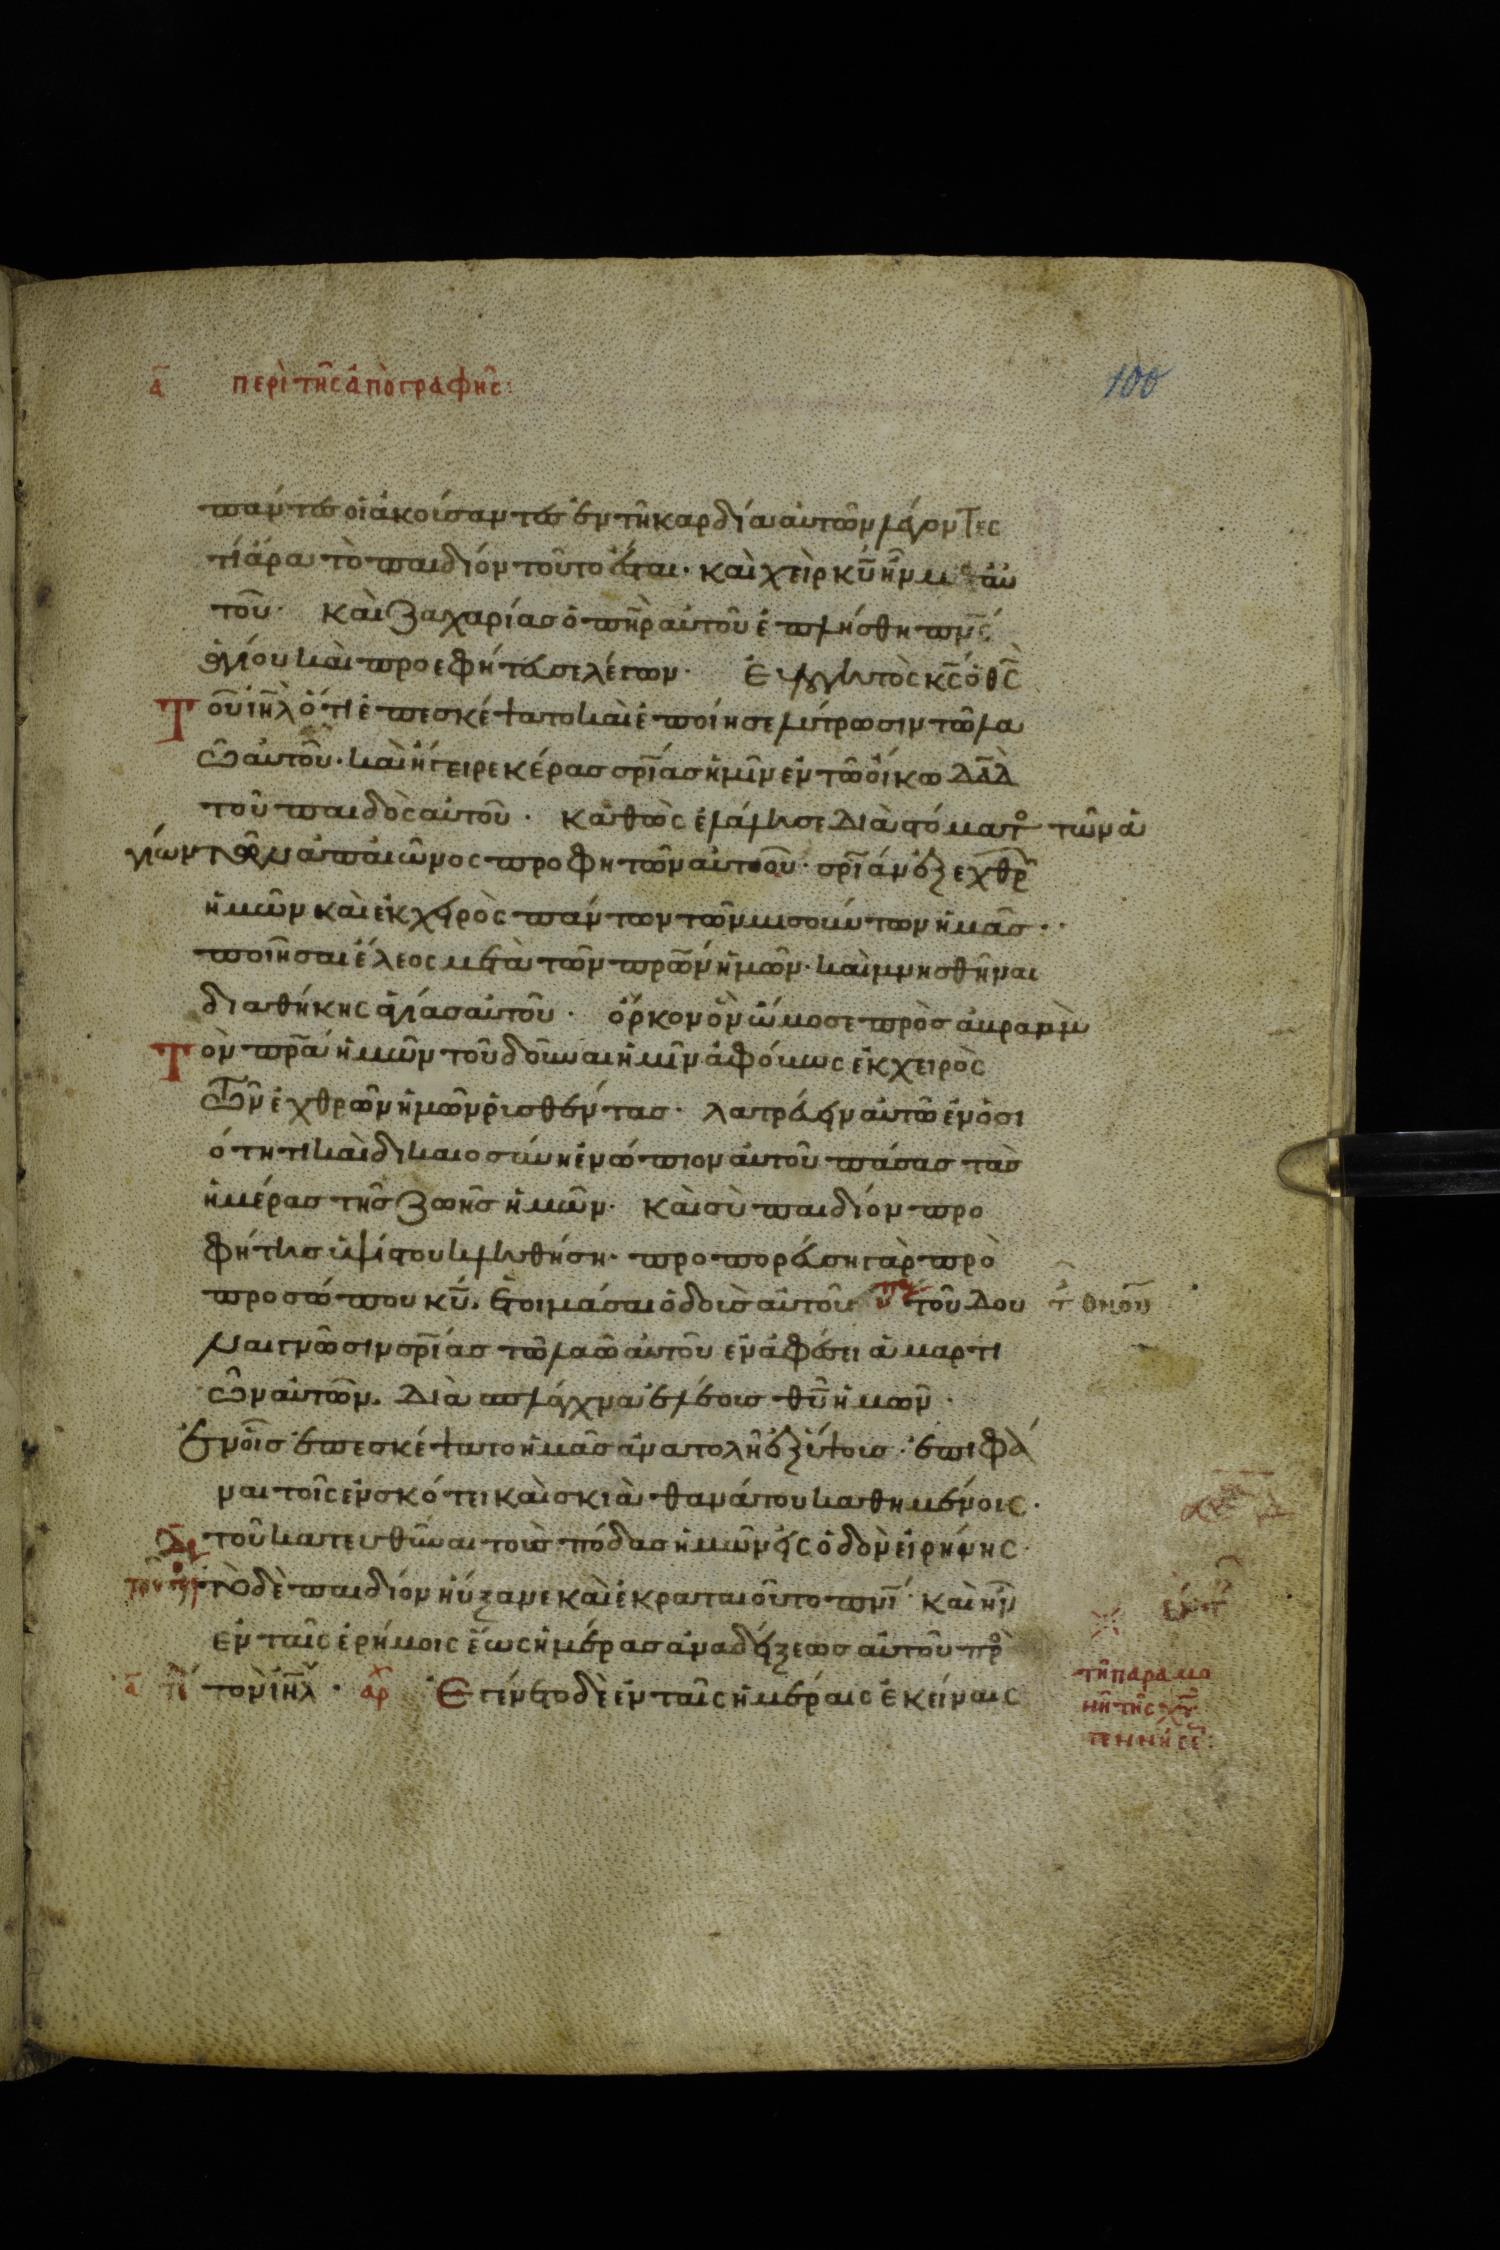 α̅ περὶ τῆς ἀπογραφῆς:
100
πάντες οἱ ἀκούσαντες ἐν τῇ καρδία αὐτῶν λέγοντες
τί ἄρα τὸ παιδίον τοῦτο ἔσται· καὶ χεὶρ κ̅υ̅ ἦν μετ αὐ
τοῦ· Καὶ Ζαχαρίας ὁ π̅η̅ρ̅ αὐτοῦ ἐπλήσθη π̅ν̅ς̅
ἁγίου καὶ προεφήτευσε λέγων· Εὐλογητὸς κ̅ς̅ ὁ θ̅ς̅
Τοῦ ι̅η̅λ̅ ὅτι ἐπεσκέψατο καὶ ἐποίησε λύτρωσιν τῷ λα
ῷ αὐτοῦ· καὶ ἤγειρε κέρας σ̅ρ̅ι̅ας ἡμῖν ἐν τῷ οἴκω δ̅α̅δ̅
τοῦ παιδὸς αὐτοῦ· καθὼς ἐλάλησε διὰ στόματο τῶν ἁ
γίων τῶν ἀπ αἰῶνος προφητῶν αὐτοῦ· σ̅ρ̅ι̅αν ἐξ εχθρ
ἡμῶν καὶ ἐκ χειρὸς πάντων τῶν μισούντων ἡμᾶς··
ποιῆσαι ἔλεος μετὰ τῶν π̅ρ̅ων ἡμῶν· καὶ μνησθῆναι
διαθήκης ἁγίας αὐτοῦ· ὅρκον ὃν ὤμοσε πρὸς αβρααμ
Τὸν π̅ρ̅α ἡμῶν τοῦ δοῦναι ἡμῖν ἀφόβως ἐκ χειρὸς
Τῶν ἐχθρῶν ἡμῶν ῥυσθέντας· λατρεύειν αὐτῷ ἐν ὁσι
ότητι καὶ δικαιοσύνη ἐνώπιον αὐτοῦ πάσας τὰς
ἡμέρας τῆς ζωῆς ἡμῶν· Καὶ σὺ παιδίον προ
φήτης ὑψίστου κληθήση· προπορεύση γὰρ πρὸ
προσώπου κ̅υ̅. ἑτοιμάσαι ὁδοὺς αὐτοῦ τοῦ δου
ναι γνῶσιν σ̅ρ̅ι̅ας τῷ λαῷ αὐτοῦ ἐν ἀφέσει ἁμαρτι
ῶν αὐτῶν. Διὰ σπλάγχνα ἐλέους θ̅υ̅ ἡμῶν·
ἐν οἷς ἐπεσκέψατο ἡμᾶς ἀνατολὴ ἐξ ὕψους· ἐπιφᾶ
ναι τοῖς ἐν σκότει καὶ σκιᾷ θανάτου καθημένοις·
τοῦ κατευθῦναι τοὺς πόδας ἡμῶν εἰς ὁδὸν εἰρήνης·
Τὸ δὲ παιδίον ηὔξανε καὶ ἐκραταιοῦτο π̅ν̅ι̅· Καὶ ἦν
ἐν ταῖς ἐρήμοις ἕως ἡμέρας ἀναδείξεως αὐτοῦ πρ
τὸν ι̅η̅λ̅· αρ Ἐγένετο δὲ ἐν ταῖς ἡμέραις ἐκείναις
τῇ παραμο
νῇ τῆς χ̅υ̅
γεννήσε: